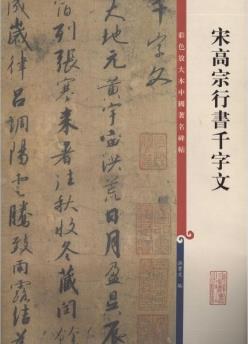 宋高宗行書千字文
彩色放大本中國著名碑帖
孫寶文 編
千字文
天地元黃宇宙洪荒日月盈昃辰
宿列張寒来暑往秋收冬藏閏餘
成歲律呂調陽雲騰致雨露結